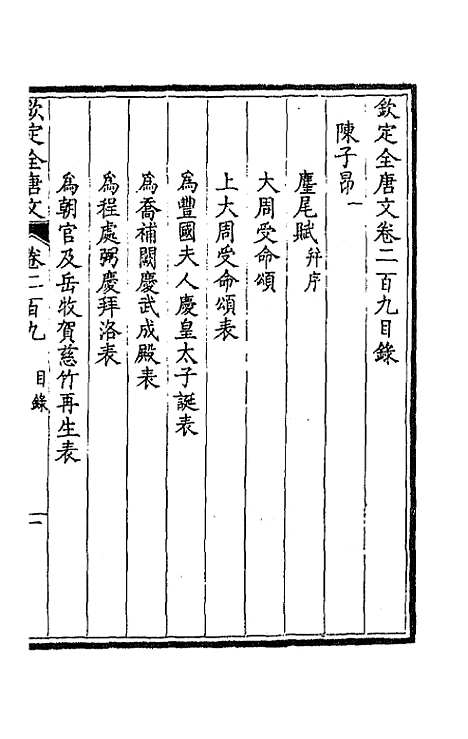 欽定全唐文卷二百九目錄
陳子昂一
麈尾賦并序
大周受命頌
上大周受命頌表
爲豐國夫人慶皇太子誕表
爲喬補闕慶武成殿表
爲程處弼慶拜洛表
爲朝官及岳牧賀慈竹再生表
欽定全唐文 卷二百九 目錄 一